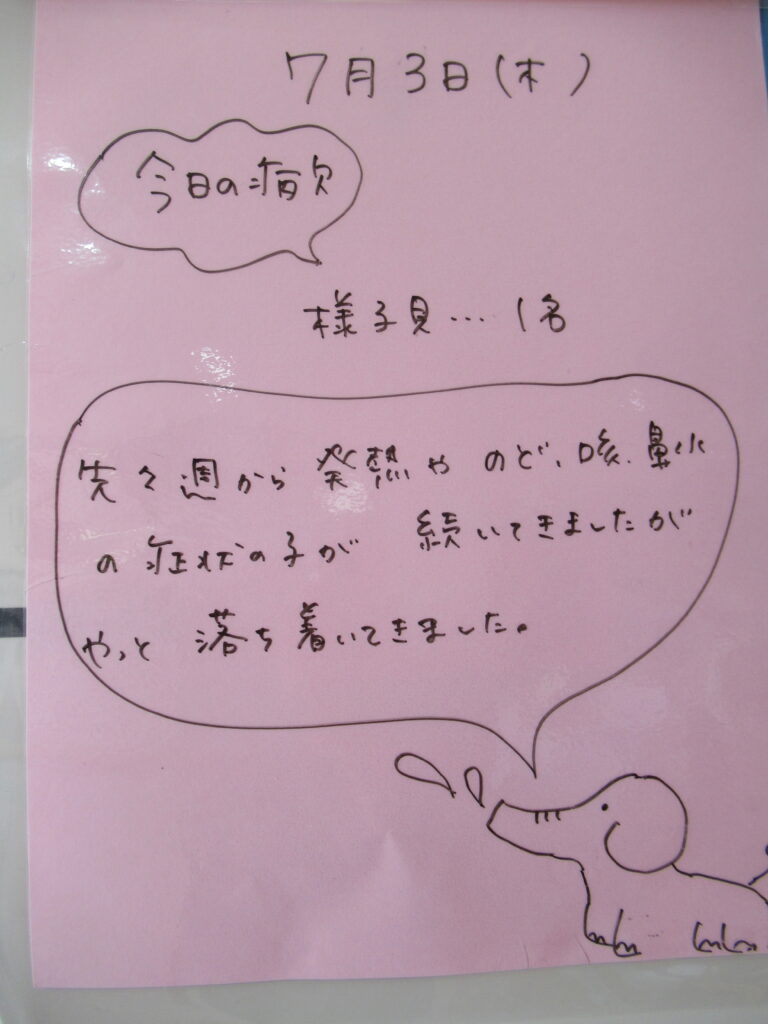 7月3日(木)
今日の病欠
様子見…1名
先々週から発熱や のど、咳、鼻水
の症状の子が 続いてきましたが
やっと 落ち着いてきました。